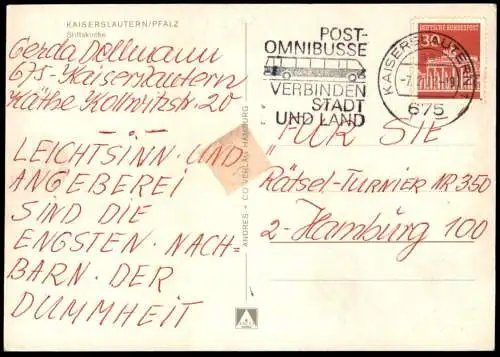 KAISERSLAUTERN/PFALZ
Stiftskirche
Gerda Dollmann
675-Kaiserslautern
Käthe Kollwitzstr. 20
LEICHTSINN UND
ANGEBEREI
SIND DIE
ENGSTEN NACH-
BARN DER
DUMMHEIT
ANDRES + CO VERLAG HAMBURG
POST-
OMNIBUSSE
VERBINDEN
STADT
UND LAND
KAISERSLAUTERN
675
DEUTSCHE BUNDESPOST
30
"FÜR SIE"
Rätsel-Turnier NR 350
2-Hamburg 100